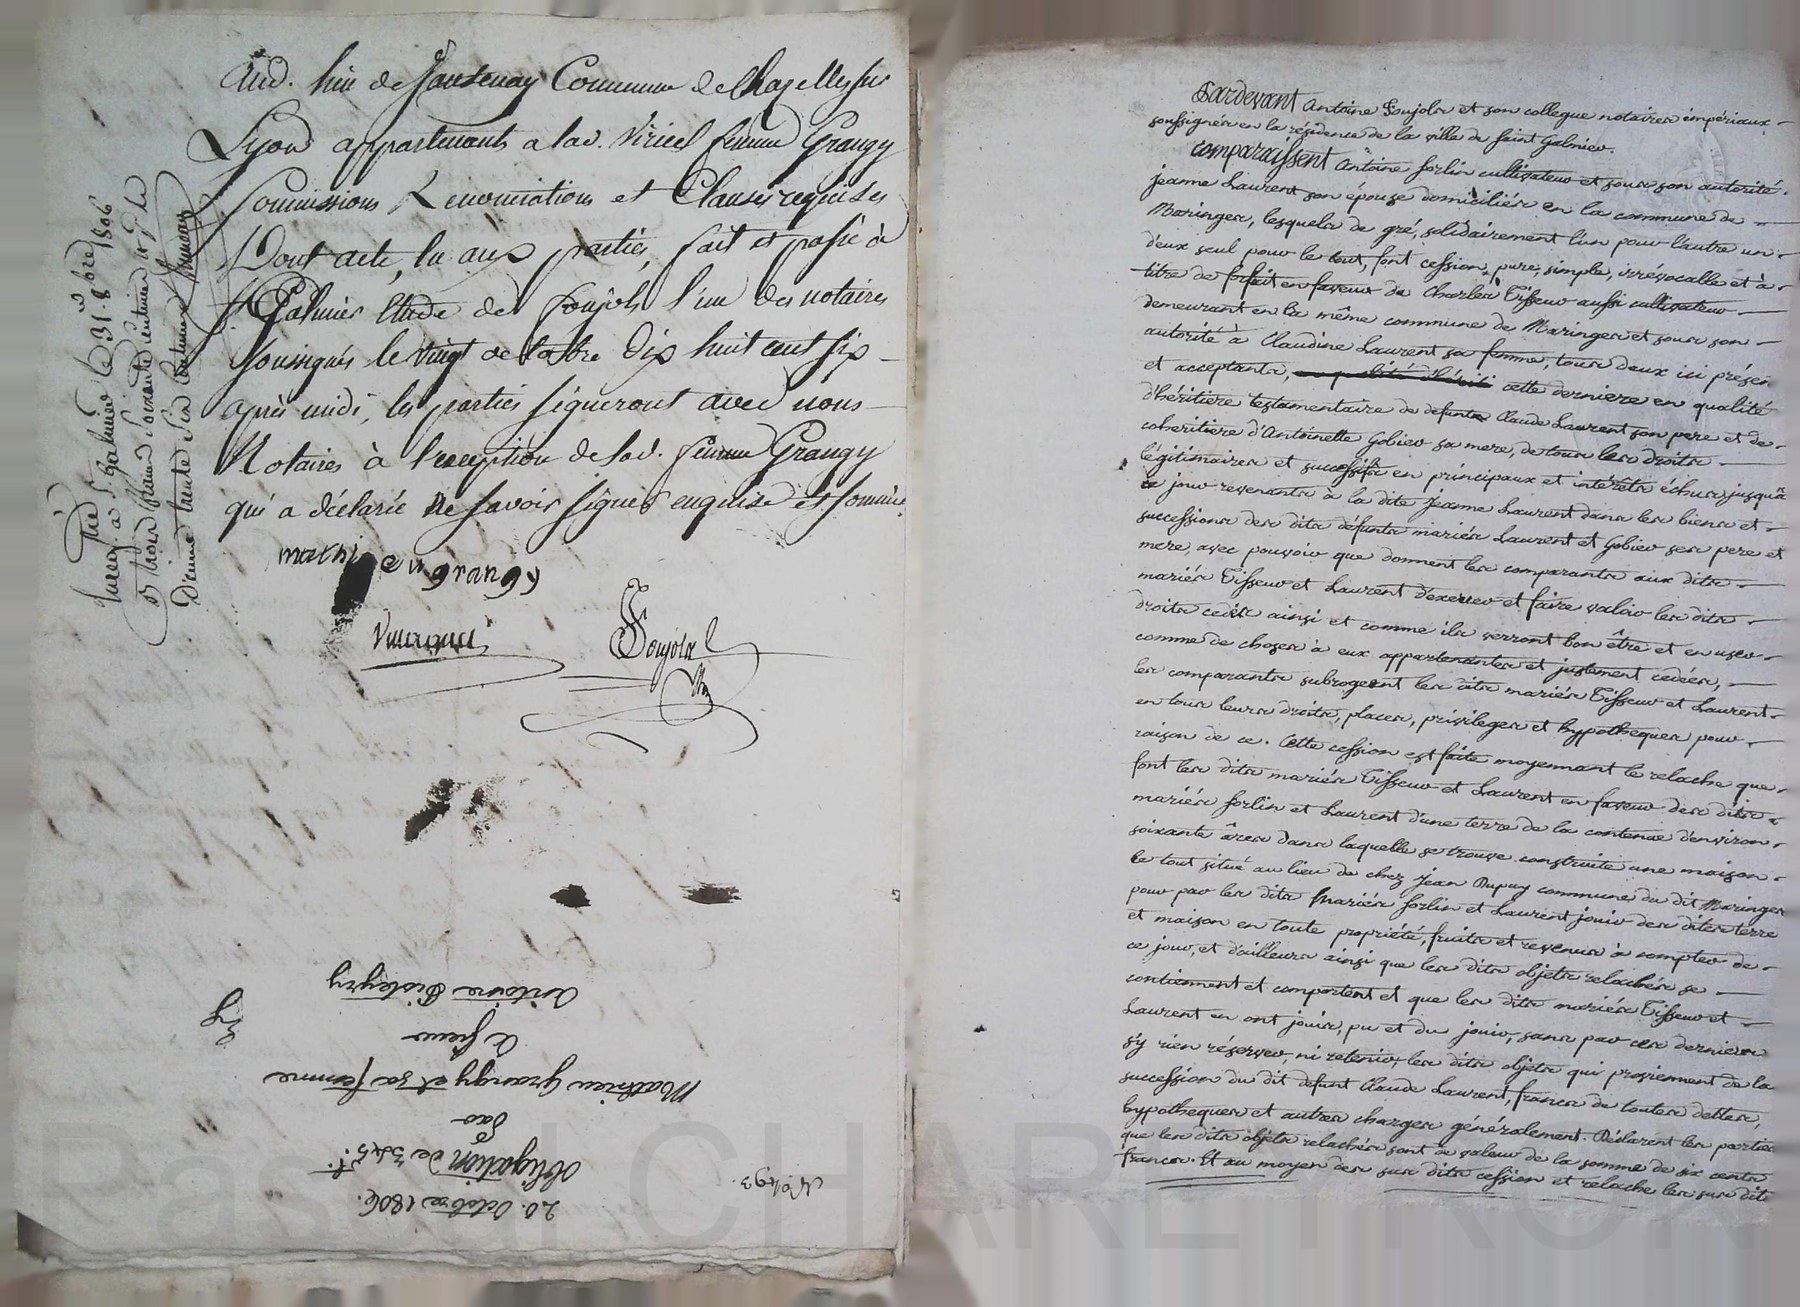 aud. lieu de Jantenay Commune de Chazelles sur
Lyon appartenants a lad. Viricel femme Grangy
Soumissions Renonciations et Clauses requises
Dont acte, lu aux parties, fait et passé à
St Galmier Etude de Poujols l'un des notaires
soussignés le vingt octobre dix huit cent six
après midi, les parties signeront avec nous
Notaires à l'exception de lad. femme Grangy
qui a déclaré ne savoir signer enquise et sommée.
mathieu grangy
Poujols
Enreg. a St Galmier le 31 8bre 1806
D'une trente six centimes
20. Octobre 1806.
Obligation de 345 f.
Par
Mathieu Grangy et sa femme
à sieur
Antoine Pioleyry
N° 493.
Pardevant Antoine Poujols et son collegue notaires impériaux
soussignés en la résidence de la ville de Saint Galmier.
comparaissent Antoine Forlin cultivateur et sous son autorité
jeanne Laurent son épouse domiciliés en la commune de
Maringes, lesquels de gré, solidairement l'un pour l'autre un
d'eux seul pour le tout, font cession pure, simple, irrévocable et à
titre de forfait en faveur de Charles Tisseur aussi cultivateur
demeurant en la même commune de Maringes et sous son
autorité à Claudine Laurent sa femme, tous deux ici présens
et acceptants, cette derniere en qualité
d'héritiere testamentaire de defunt Claude Laurent son pere et de
coheritiere d'Antoinette Gobier sa mere, de tous les droits
légitimaires et successifs en principaux et intérêts échus jusqu'à
ce jour revenants à la dite Jeanne Laurent dans les biens et
successions des dits défunts mariés Laurent et Gobier ses pere et
mere, avec pouvoir que donnent les comparants aux dits
mariés Tisseur et Laurent d'exercer et faire valoir les dits
droits cedés ainsi et comme ils verront bon être et en user
comme de choses à eux appartenantes et justement cedées,
les comparants subrogeant les dits mariés Tisseur et Laurent
en tous leurs droits, places, privileges et hypotheques pour
raison de ce. Cette cession est faite moyennant le relache que
font les dits mariés Tisseur et Laurent en faveur des dits
mariés Forlin et Laurent d'une terre de la contenue d'environ
soixante âres dans laquelle se trouve construite une maison
le tout situé au lieu de chez Jean Dupuy commune du dit Maringes
pour par les dits mariés Forlin et Laurent jouir des dites terre
et maison en toute propriété, fruits et revenus à compter de
ce jour, et d'ailleurs ainsi que les dits objets relachés se
contiennent et comportent et que les dits mariés Tisseur et
Laurent en ont jouis, pu et du jouir, sans par ces derniers
s'y rien réserver, ni retenir, les dits objets qui proviennent de la
succession du dit defunt Claude Laurent, francs de toutes dettes,
hypotheques et autres charges généralement. Déclarent les parties
que les dits objets relachés sont de valeur de la somme de six cents
francs. Et au moyen des sus dits cession et relache les sus dits
Pascal CHAREYRON